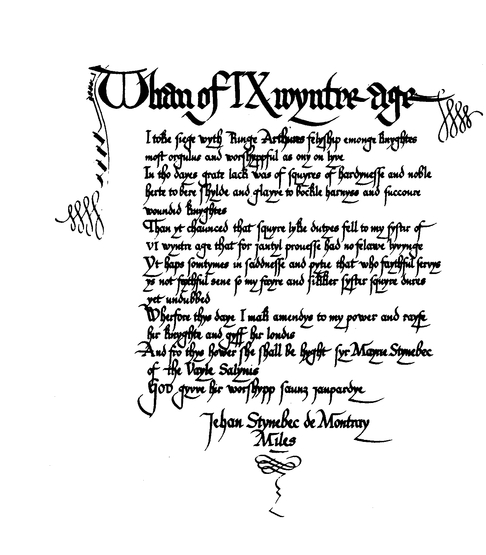 Whan of IX wyntre age
I toke siege wyth Kinge Arthures felyship emonge knyghtes
most orgulus and worshyppful as ony on lyve
In tho dayes grate lack was of squyres of hardynesse and noble
herte to bere shylde and glayve to bockle harnyss and succoure
wounded knyghtes
Than yt chaunced that squyre lyke dutyes fell to my systir of
VI wyntre age that for jantyl prouesse had no felawe lyvynge
Yt haps somtymes in saddnesse and pytie that who faythful servys
ys not faythful sene so my fayre and sikker syster squyre dures
yet undubbed
Wherfore thys daye I mak amendys to my power and rayse
hir knyghte and gyff hir londis
And fro thys hower she shall be hyght syr Mayrie Stynebec
of the Vayle Salynis
God gyvve hir worshypp saunz jaupardye
Jehan Stynebec de Montray
Miles